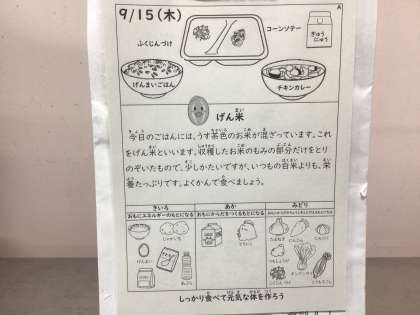 9/15(木)
A
ふくじんづけ
コーンソテー
ぎゅうにゅう
げんまいごはん
チキンカレー
げん米
今日のごはんには、うす茶色のお米が混ざっています。これ
をげん米といいます。収穫したお米のもみの部分だけをとり
のぞいたもので、少しかたいですが、いつもの白米よりも、栄
養たっぷりです。よくかんで食べましょう。
きいろ
あか
みどり
おもにエネルギーのもとになる
おもにからだをつくるもとになる
じゃがいも
げんまい
とりにく
たまねぎ
にんじん
しっかり食べて元気な体を作ろう